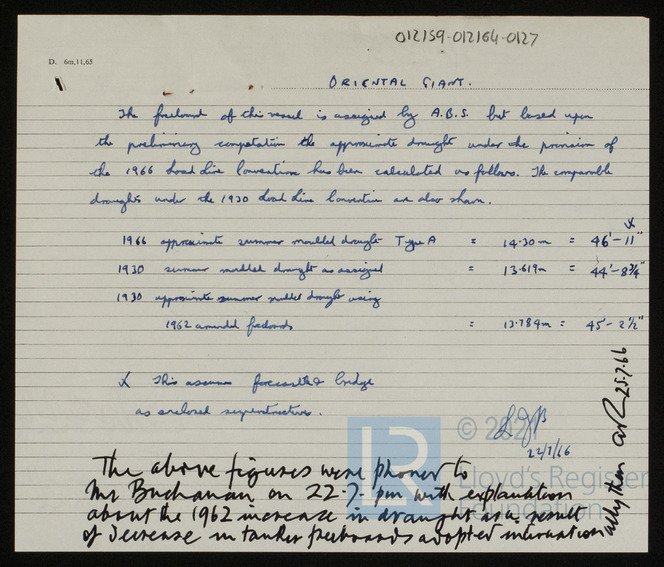 012159-012164-0127
D. 6m,11,65
ORIENTAL GIANT.
The freeboard of this vessel is assigned by A.B.S. but based upon
the preliminary computation the approximate draught under the provision of
the 1966 Load Line Convention has been calculated as follows. The comparable
draughts under the 1930 Load Line Convention are also shown.
x
1966 approximate summer moulded draught Type A = 14.30m = 46'-11"
1930 summer moulded draught as assigned = 13.619m = 44'-8¾"
1930 approximate summer moulded draught using
1962 amended freeboards = 13.784m = 45'-2½"
x This assumes forecastle & bridge
as enclosed superstructures.
22/7/66
The above figures were phoned to
Mr Buchanan on 22-7- pm with explanation
about the 1962 increase in draught as a result
of decrease in tanker freeboards adopted internationally then
25.7.66
LR
© 2021
Lloyd's Register
Foundation